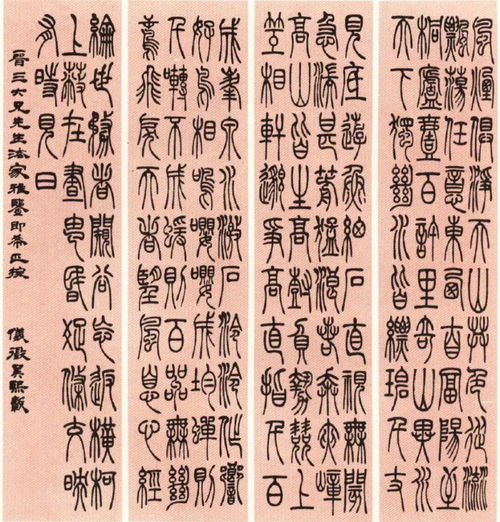 風煙俱淨天山共色從流
飄蕩任意東西自富陽至
桐廬壹百許里奇山異水
天下獨絕水皆縹碧千丈
見底遊魚細石直視無閡
急湍甚箭猛浪若奔夾嶂
高山皆生高樹負勢競上
互相軒邈爭高直指千百
成峯泉水激石泠泠作響
好鳥相鳴嚶嚶成均蟬則
千囀不窮猨則百叫無絕
鳶飛戾天者望峯息心經
綸世務者闚谷忘返橫柯
上蔽在晝猶昏疏條交映
有時見日
晉三六兄先生法家雅鑒即希正捥 儀徵吳熙載